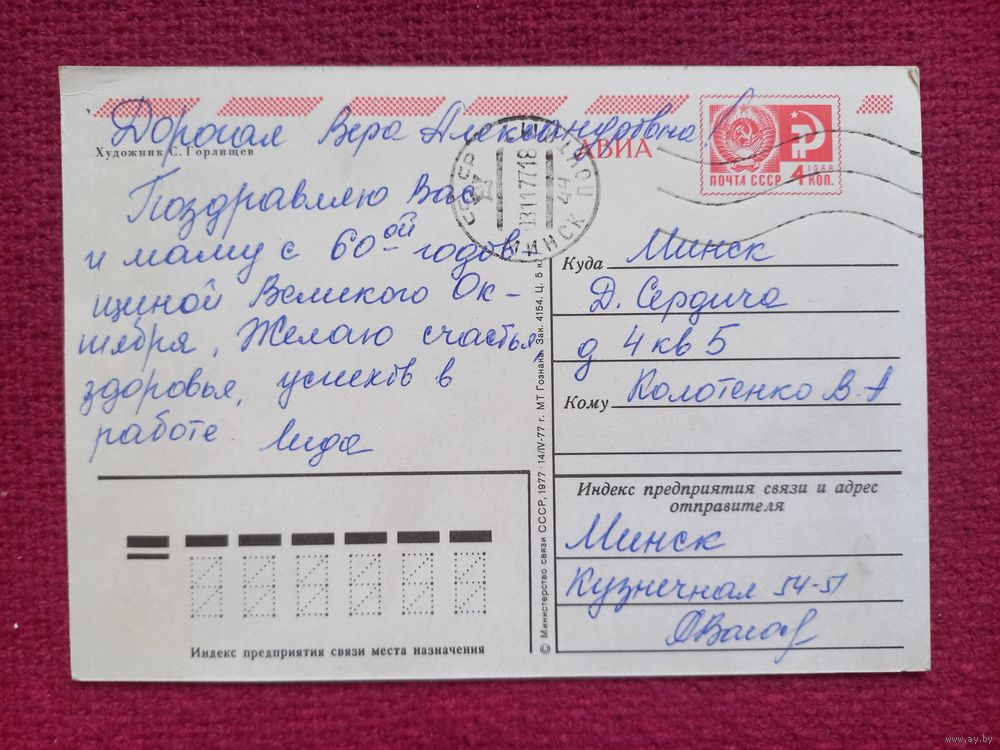 Дорогая Вера Александровна!
Художник С. Горлищев
АВИА
ПОЧТА СССР 4 КОП.
1966
СССР МИНСК
Поздравляю Вас
и маму с 60ой годов-
щиной Великого Ок-
тября, Желаю счастья,
здоровья, успехов в
работе. Лида
Куда Минск
Д. Сердича
д 4 кв 5
Кому Колотенко В. А
Индекс предприятия связи и адрес
отправителя
Минск
Кузнечная 54-51
Индекс предприятия связи места назначения
© Министерство связи СССР, 1977 · 14/IV-77 г. МТ Гознака. Зак. 4154. Ц. 5 к.
www.ay.by